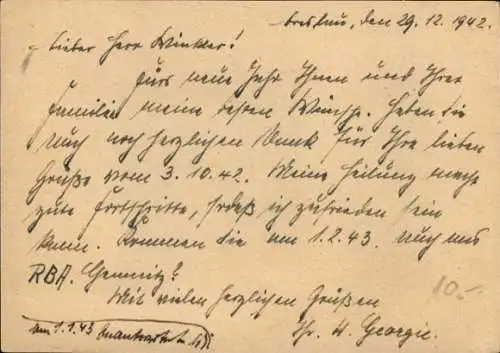 Breslau, den 29.12.1942.
Lieber Herr Winkler!
Fürs neue Jahr Ihnen und Ihrer
Familie meine besten Wünsche. Haben Sie
auch noch herzlichen Dank für Ihre lieben
Grüße vom 3.10.42. Meine Heilung macht
gute Fortschritte, sodaß ich zufrieden sein
kann. Kommen Sie am 1.2.43. nach
RBA. Chemnitz?
Mit vielen herzlichen Grüßen
Ihr H. Georgie.
10.-
am 1.1.43 beantwortet